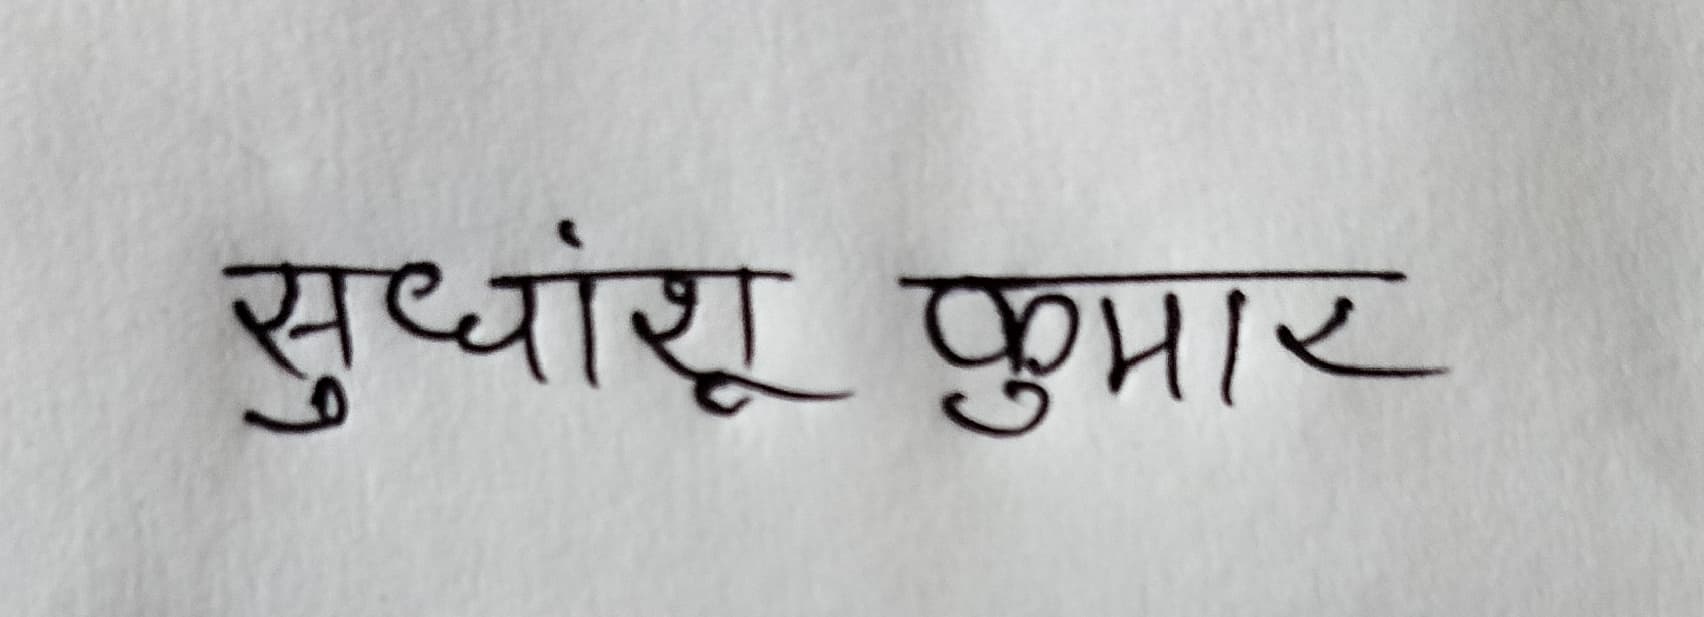 सुधांशू कुमार